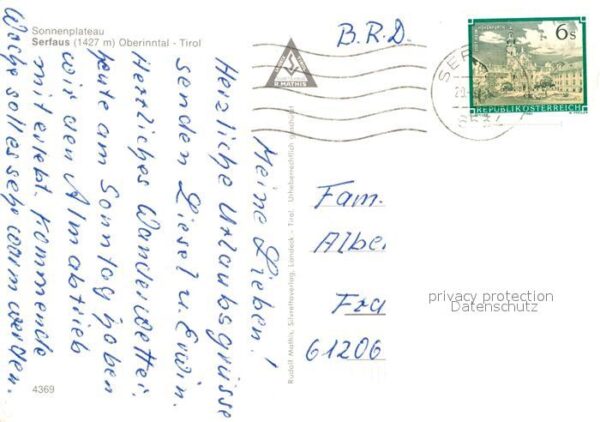 Sonnenplateau
Serfaus (1427 m) Oberinntal - Tirol
Meine Lieben!
Herzliche Urlaubsgrüsse
senden Liesel u. Erwin.
Herrliches Wanderwetter.
heute am Sonntag haben
wir den Almabtrieb
miterlebt. Kommende
Woche soll es sehr warm werden.
4369
Rudolf Mathis, Silvrettaverlag, Landeck - Tirol. Urheberrechtlich geschützt
R MATHIS
B.R.D.
6 s
REPUBLIK ÖSTERREICH
Fam.
Albe
Fra
61206
privacy protection
Datenschutz